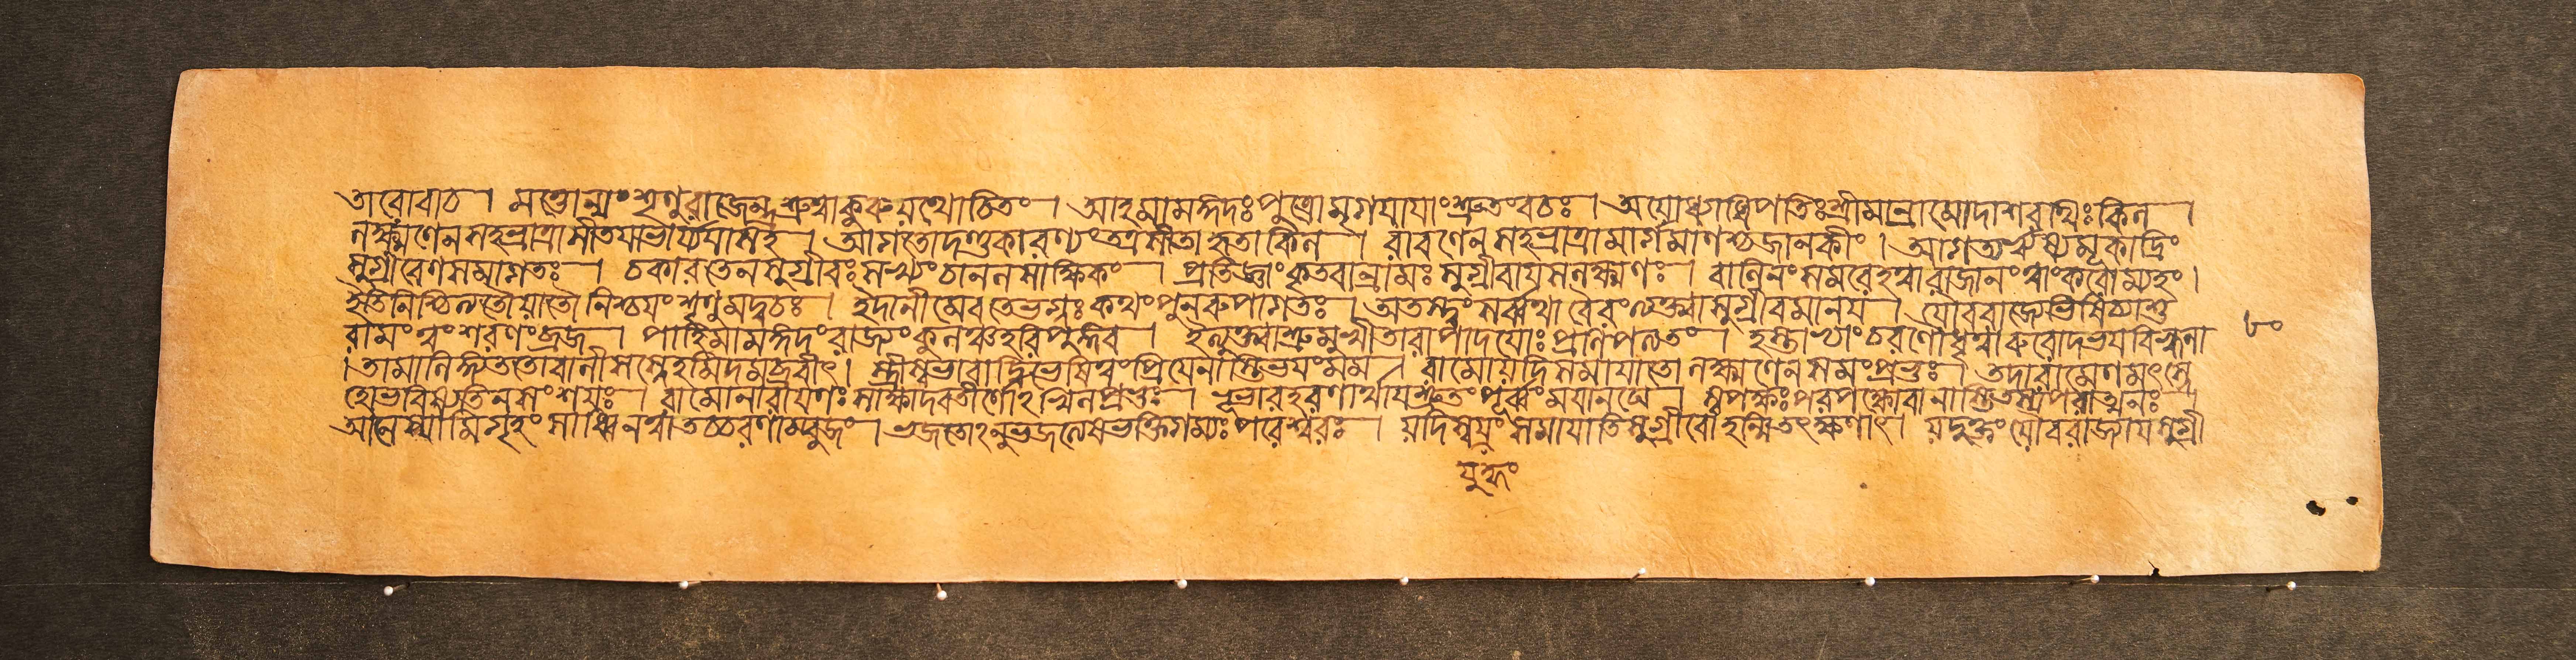 তারোবাচ । মত্তোন্যাং শৃণু রাজেন্দ্র শ্রুত্বা কুরু যথোচিতং । আহ মামঙ্গদঃ পুত্রো মৃগয়ায়াং শ্রুতং বচঃ । অযোধ্যাধিপতিঃ শ্রীমান্রামো দাশরথিঃ কিল ।
লক্ষ্মণেন সহ ভ্রাত্রা সীতয়া ভার্য্যয়া সহ । আগতো দণ্ডকারণ্যং তত্র সীতা হৃতা কিল । রাবণেন সহ ভ্রাত্রা মার্গমাণশ্চ জানকীং । আগত্য ঋষ্যমূকাদ্রিং
সুগ্রীবেণ সমাগতঃ । চকার তেন সুগ্রীবঃ সখ্যং চানলসাক্ষিকং । প্রতিজ্ঞাং কৃতবান্রামঃ সুগ্রীবায় সলক্ষ্মণঃ । বালিনং সমরে হত্বা রাজানং ত্বাং করোম্যহং ।
ইতি নিশ্চিত্য তৌ যাতৌ নিশ্চয়ং শৃণু মদ্বচঃ । ইদানীমেব তে ভগ্নঃ কথং পুনরুপাগতঃ । অতস্ত্বং সর্ব্বথা বৈরং ত্যক্ত্বা সুগ্রীবমানয় । যৌবরাজ্যেভিষিঞ্চাশু
রামং ত্বং শরণং ব্রজ । পাহি মামঙ্গদং রাজ্যং কুলঞ্চ হরিপুঙ্গব । ইত্যুক্ত্বাশ্রুমুখী তারা পাদয়োঃ প্রণিপত্য তং । হস্তাভ্যাং চরণৌ ধৃত্বা রুরোদ ভয়বিহ্বলা
। তামালিঙ্গ্য ততো বালী সস্নেহমিদমব্রবীৎ । স্ত্রীস্বভাবাদ্বিভেষি ত্বং প্রিয়ে নাস্তি ভয়ং মম । রামো যদি সমায়াতো লক্ষ্মণেন সমং প্রভুঃ । তদা রামেণ মৎস্নে
হো ভবিষ্যতি ন সংশয়ঃ । রামো নারায়ণঃ সাক্ষাদবতীর্ণোঽখিলপ্রভুঃ । ভূভারহরণার্থায় শ্রুতং পূর্ব্বং ময়ানঘে । স্বপক্ষঃ পরপক্ষো বা নাস্তি তস্য পরাত্মনঃ ।
আনেষ্যামি গৃহং সাধ্বি নত্বা তচ্চরণাম্বুজং । ভজতোঽনুভজত্যেষ ভক্তিগম্যঃ পরেশ্বরঃ । যদি স্বয়ং সমায়াতি সুগ্রীবো হন্মি তৎক্ষণাৎ । যদুক্তং যৌবরাজ্যায় সুগ্রী